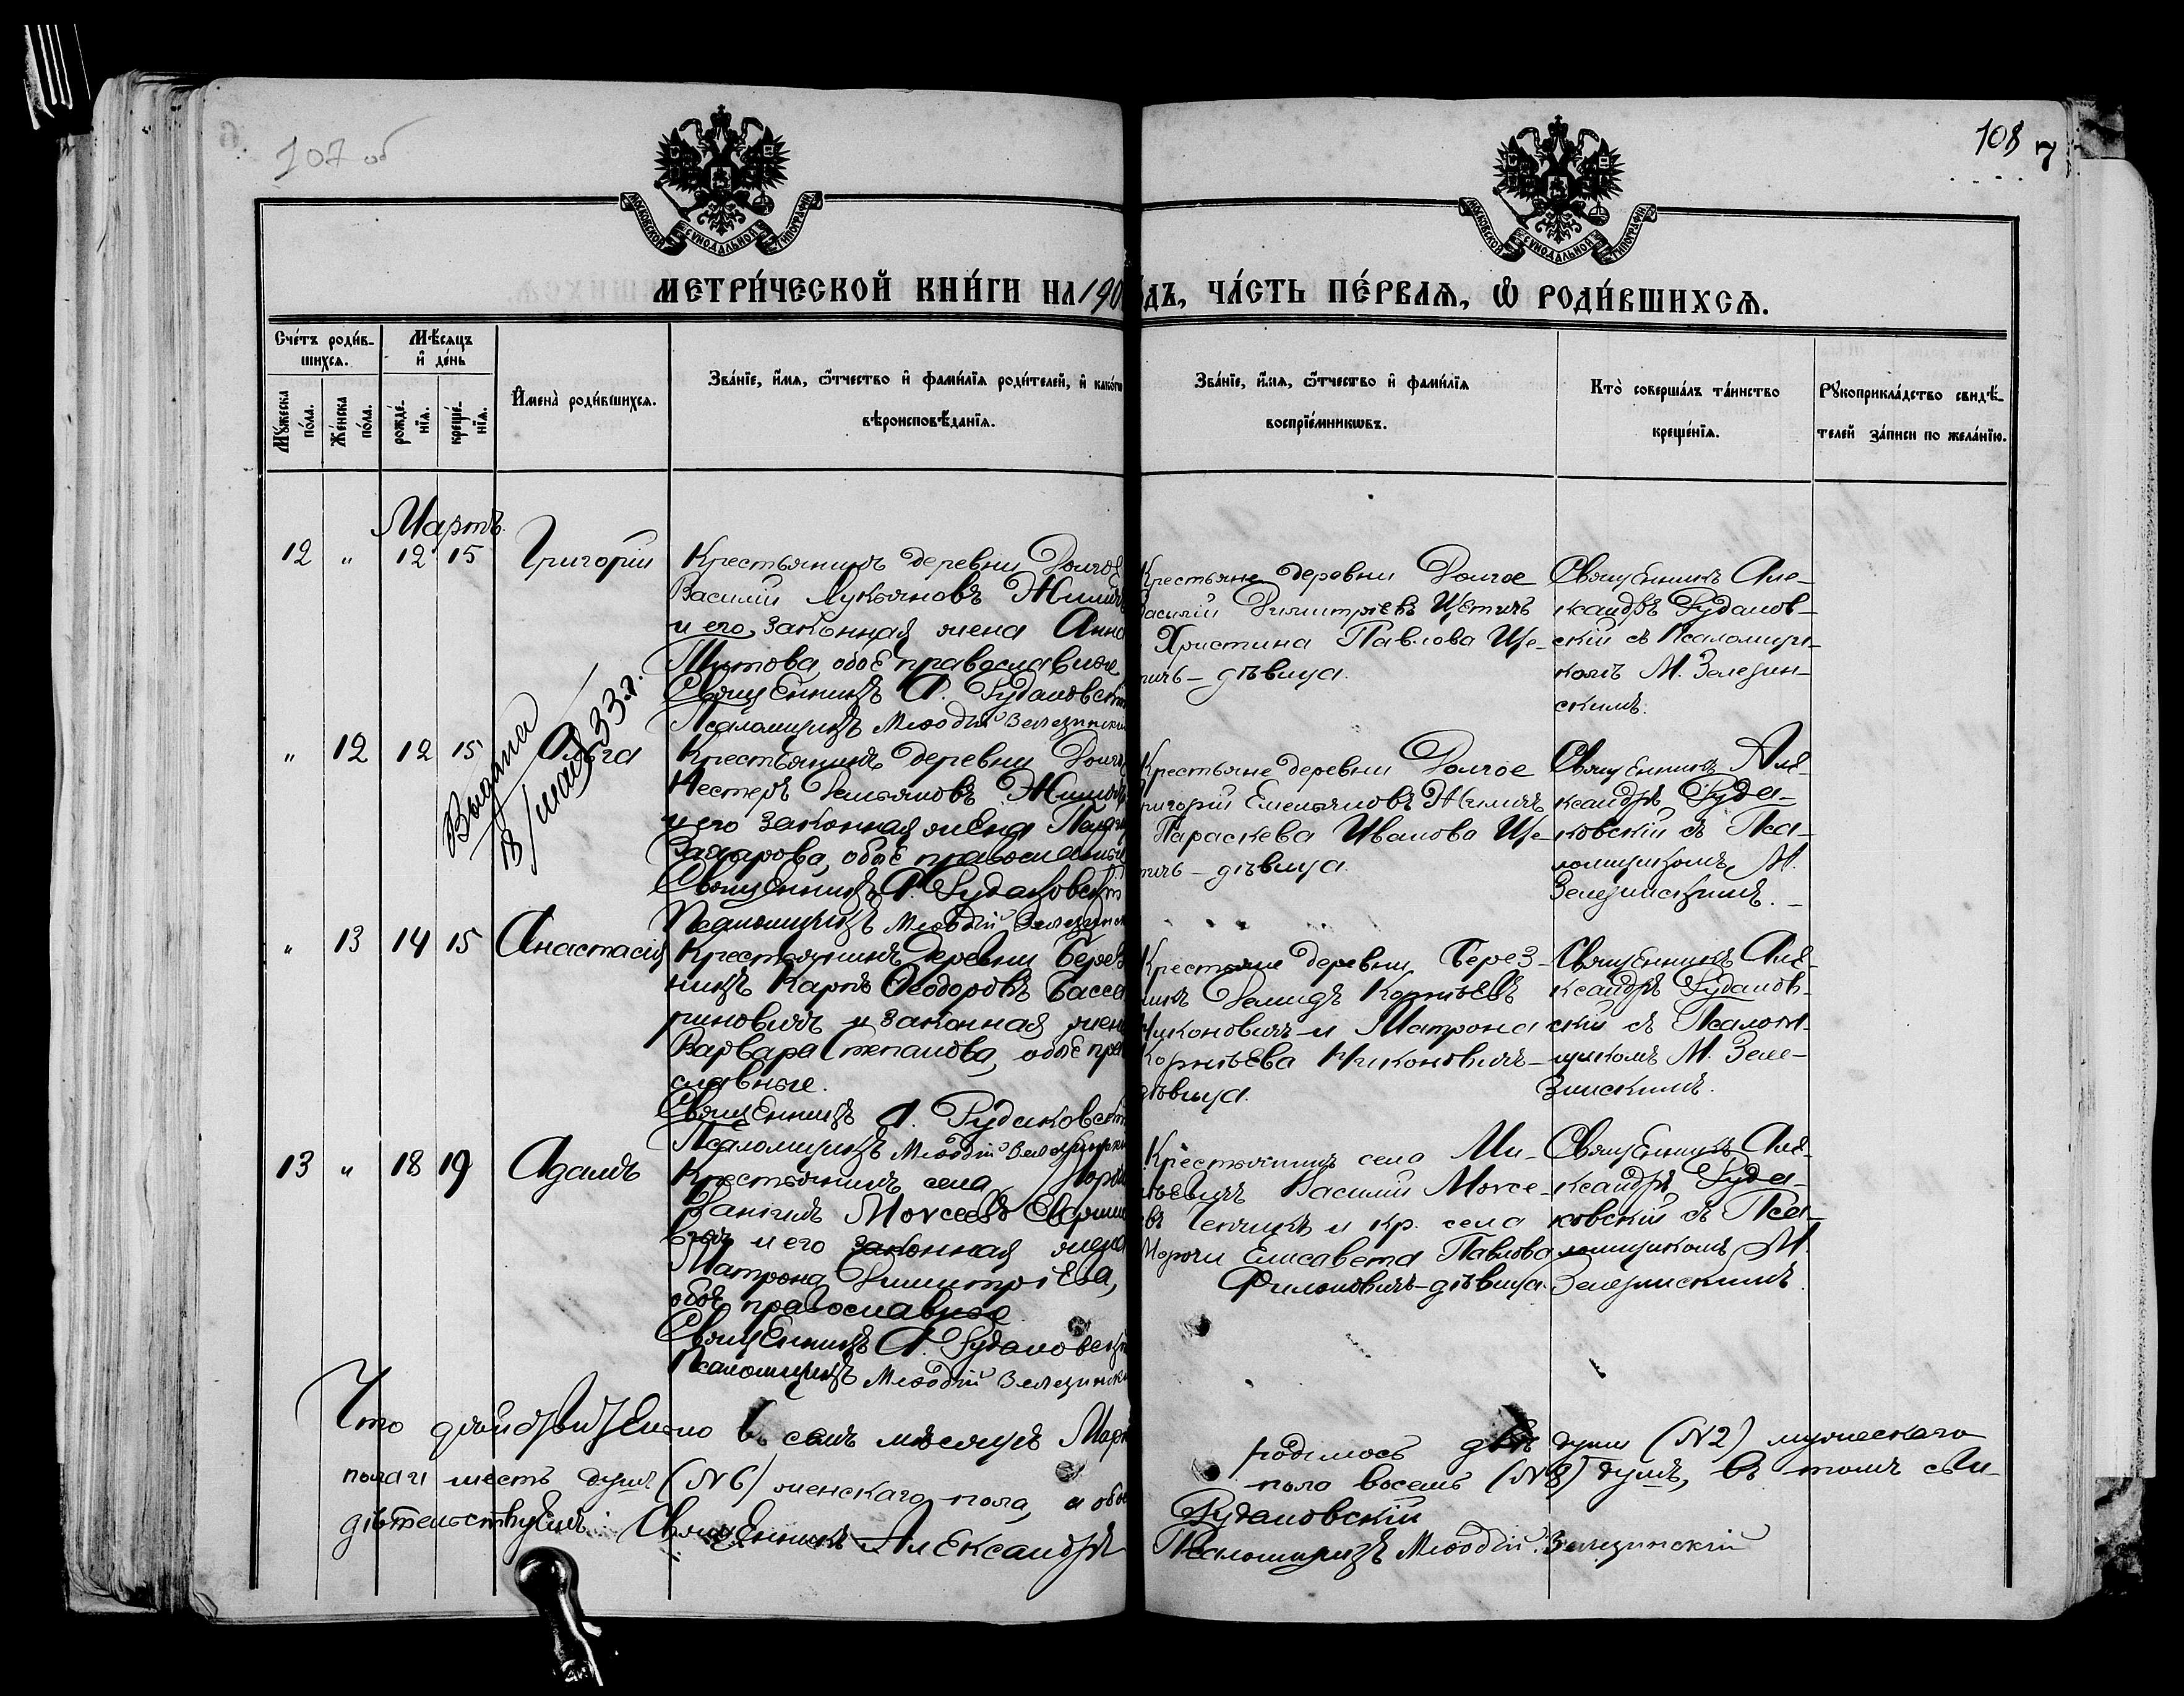 107 об
108
7
МОСКОВСКОЙ СѴНОДАЛЬНОЙ ТИПОГРАФІИ
МОСКОВСКОЙ СѴНОДАЛЬНОЙ ТИПОГРАФІИ
МЕТРИ́ЧЕСКОЙ КНИ́ГИ НА 190 ДЪ, ЧА́СТЬ ПЕ́РВАѦ, Ѽ РОДИ́ВШИХСѦ.
Сче́тъ роди́в-
шихсѧ.
Мꙋ́жеска по́ла.
Же́нска по́ла.
Мѣ́сѧцъ
и҆ де́нь
рожде́-
нїѧ.
креще́-
нїѧ.
И҆мена̀ роди́вшихсѧ.
Зва́нїе, и҆́мѧ, ѻ҆́тчество и҆ фами́лїѧ роди́телей, и҆ како́гѡ
вѣроисповѣ́данїѧ.
Зва́нїе, и҆́мѧ, ѻ҆́тчество и҆ фами́лїѧ
воспрїе́мникѡвъ.
Кто̀ соверша́лъ та́инство
креще́нїѧ.
Рꙋкоприкла́дство свидѣ́-
телей за́писи по жела́нїю.
Мартъ.
12 " 12 15 Григорій
Крестьянинъ деревни Долгое
Василій Лукьяновъ Жилич
и его законная жена Анна
Титова, обое православные
Священникъ А. Рудаковскій
Псаломщикъ Меѳодій Зелезинскій
Крестьяне деревни Долгое
Василій Димитріевъ Щетичъ
Христина Павлова Ще-
тичъ – дѣвица.
Священникъ Але-
ксандръ Рудаков-
скій съ Псаломщи-
комъ М. Зелезин-
скимъ.
Выдана
18/мая 33 г.
" 12 12 15 Ольга
Крестьянинъ деревни Долгое
Нестеръ Емельяновъ Жилич
и его законная жена
Захарова, обое православные
Священникъ А. Рудаковскій
Псаломщикъ Меѳодій Зелезинскій
Крестьяне деревни Долгое
Григорій Емельяновъ Жиличъ
Параскева Иванова Ще-
тичъ – дѣвица.
Священникъ Але-
ксандръ Руда-
ковскій съ Пса-
ломщикомъ М.
Зелезинскимъ. –
" 13 14 15 Анастасія
Крестьянинъ деревни Берез
никъ Карпъ Ѳеодоровъ Басса
риновичъ и законная жена
Варвара Степанова, обое пра
славные.
Священникъ А. Рудаковскій
Псаломщикъ Меѳодій Зелезинскій
Крестьяне деревни Берез-
никъ Демидъ Корніевъ
Никоновичъ и Матрона
Корніева Никоновичъ –
дѣвица.
Священникъ Але-
ксандръ Рудаков-
скій съ Псалом-
щикомъ М. Зеле-
зинскимъ.
13 " 18 19 Адамъ
Крестьянинъ села
Моѵсеевъ
вичъ и его законная жена
Матрона Димитріева,
обое православные
Священникъ А. Рудаковскій
Псаломщикъ Меѳодій Зелезинскій
Крестьянинъ села Ми-
Василій Моѵсе-
евъ и кр. села
Морочи Елисавета Павлова
Филоновичъ – дѣвица.
Священникъ Але-
ксандръ Руда-
ковскій съ Пса-
ломщикомъ М.
Зелезинскимъ.
Что дѣйствительно въ семъ мѣсяцѣ Март родилось двѣ души (№2) мужескаго
пола и шесть душъ (№6) женскаго пола, а обоего пола восемь (№8) душъ, въ томъ сви-
дѣтельствуемъ: Священникъ Александръ Рудаковскій
Псаломщикъ Меѳодій Зелезинскій